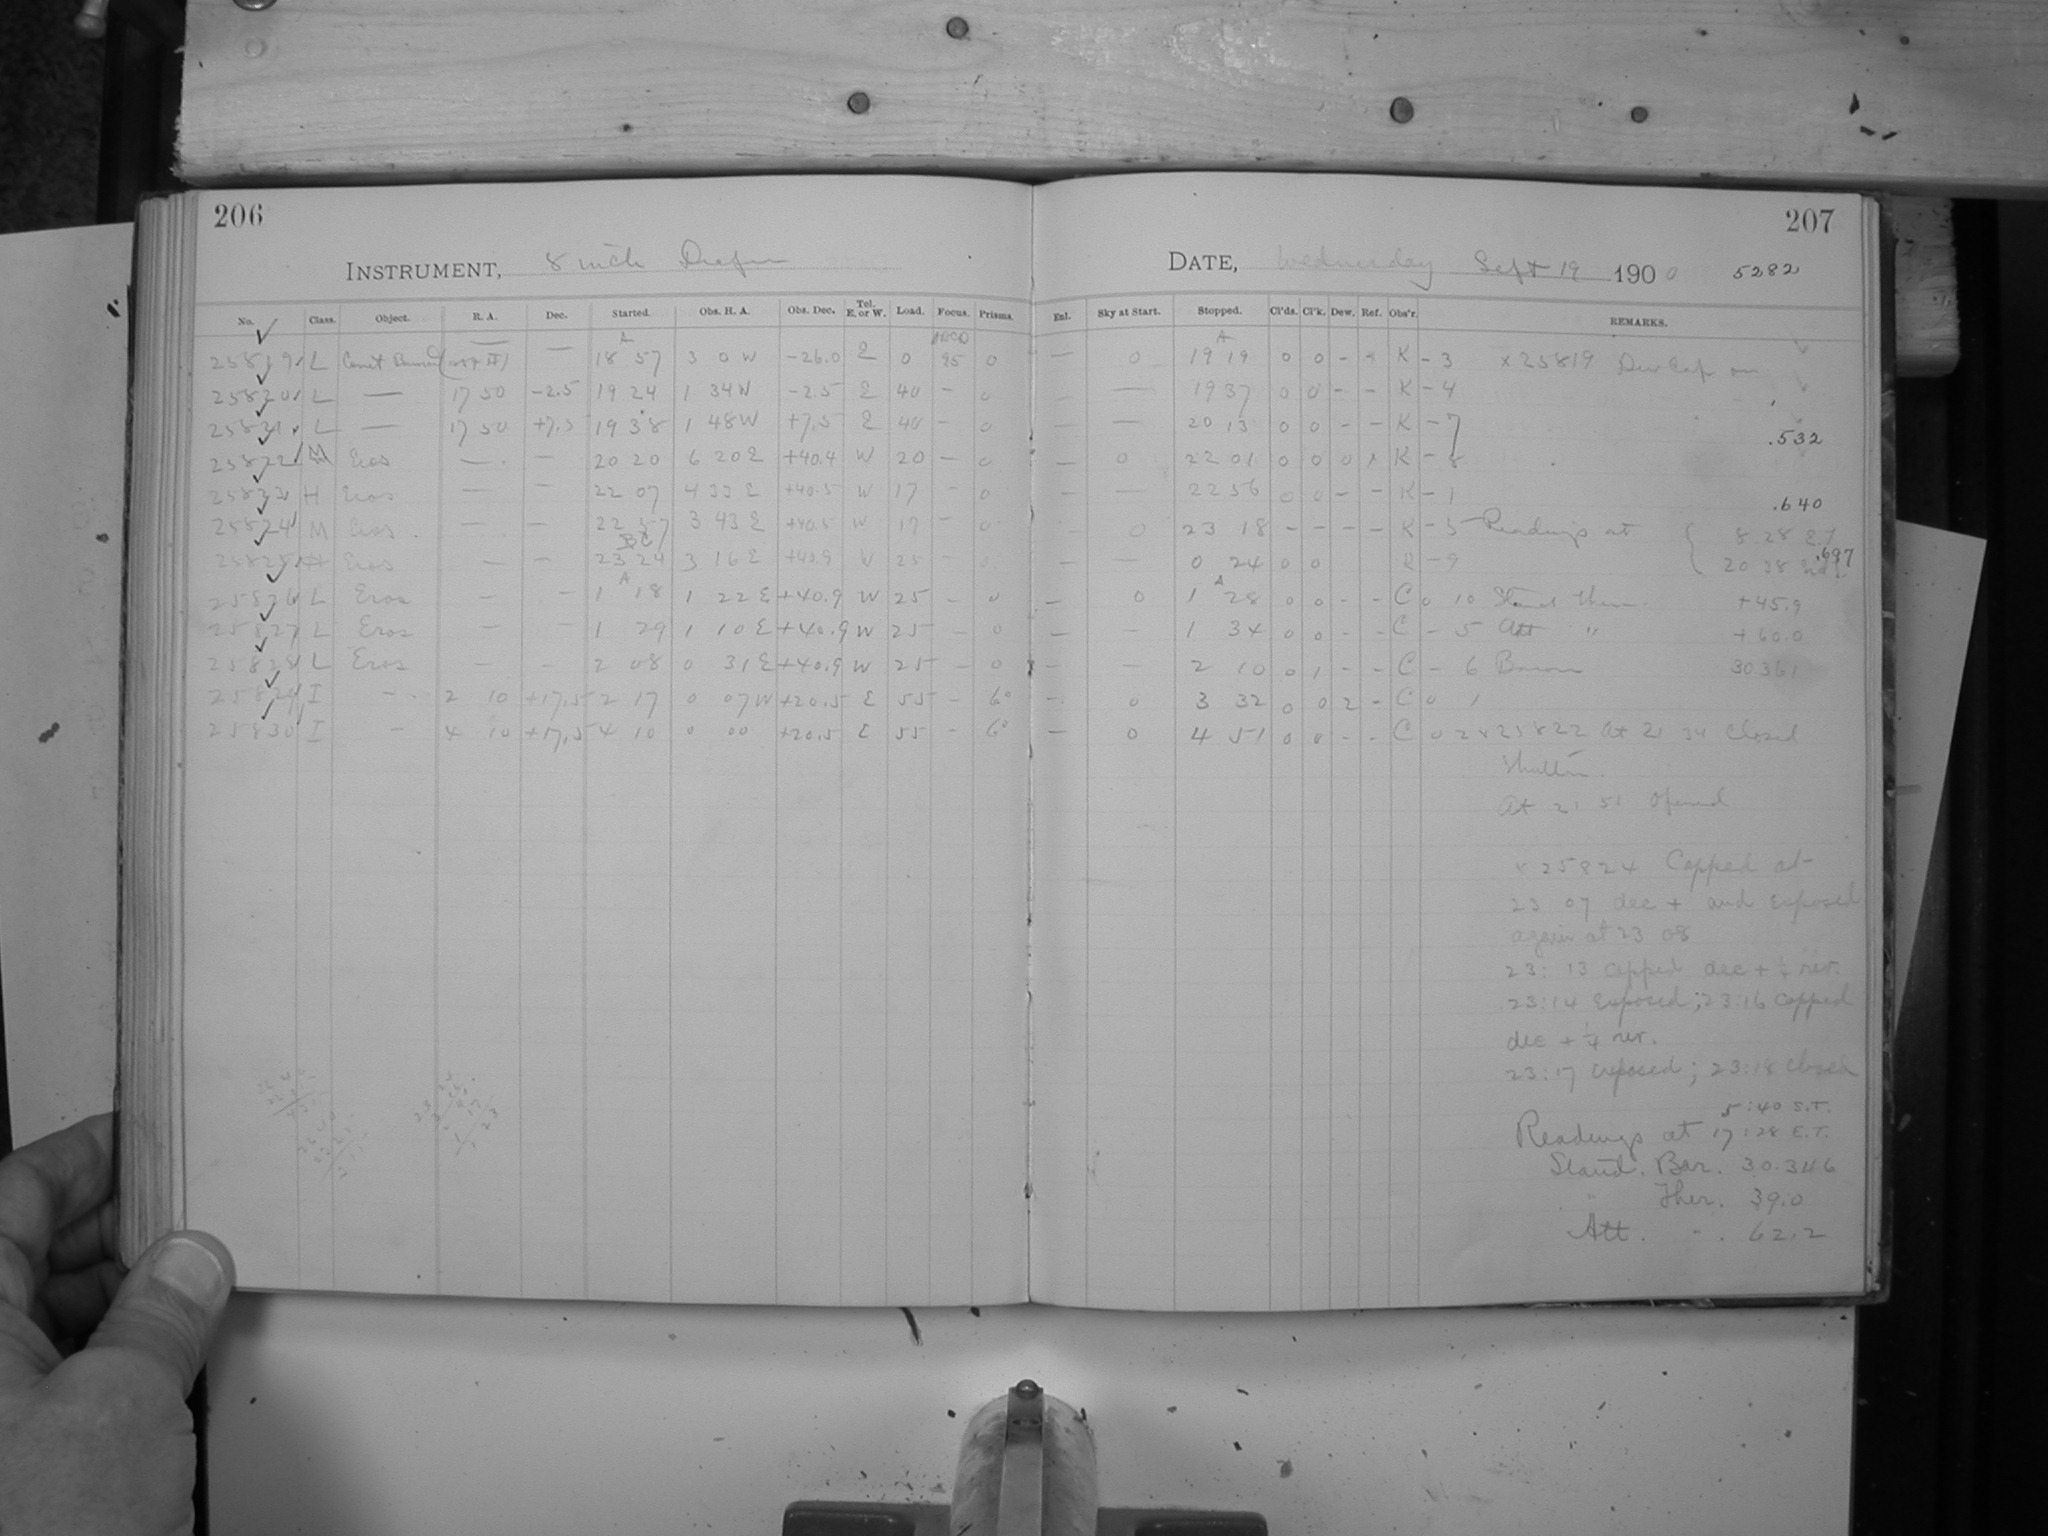 206
INSTRUMENT, 8 inch Draper
No. Class. Object. R. A. Dec. Started. Obs. H. A. Obs. Dec. Tel. E. or W. Load. Focus. Prisms.
25819 L Comet — 18 57 3 0 W -26.0 E 0 95 0
25820 L — 17 50 -2.5 19 24 1 34 W -2.5 E 40 - 0
25821 L — 17 50 +7.5 19 38 1 48 W +7.5 E 40 - 0
25822 M Eros — - 20 20 6 20 E +40.4 W 20 - 0
25823 H Eros — — 22 07 4 33 E +40.5 W 17 - 0
25824 M Eros — - 22 57 3 43 E +40.5 W 17 - 0
25825 Eros — — 23 24 3 16 E +40.9 W 25 -
25826 L Eros — - 1 18 1 22 E +40.9 W 25 - 0
25827 L Eros - - 1 29 1 10 E +40.9 W 25 - 0
25828 L Eros - - 2 08 0 31 E +40.9 W 25 - 0
25829 I - 2 10 +17.5 2 17 0 07 W +20.5 E 55 - 6°
25830 I - 4 10 +17.5 4 10 0 00 +20.5 E 55 - 6°
207
DATE, Wednesday Sept 19 1900 5282
Enl. Sky at Start. Stopped. Cl'ds. Cl'k. Dew. Ref. Obs'r. REMARKS.
— 0 19 19 0 0 - × K - 3 × 25819 Dew Cap on
— — 19 37 0 0 - - K - 4
— — 20 13 0 0 - - K - 7
.532
— 0 22 01 0 0 0 × K - 8
— — 22 56 0 0 - - K - 1
.640
0 23 18 - - - - K - 5 Readings at 8 28
— 0 24 0 0 K - 9 20 38
.697
— 0 1 28 0 0 - - C 0 10 Stand ther. +45.9
— - 1 34 0 0 - - C - 5 Att " +60.0
— — 2 10 0 1 - - C - 6 Barom 30.361
- 0 3 32 0 0 2 - C 0 1
— 0 4 51 0 0 - - C 0 2 × 25822 At 21 34 closed
shutter.
At 21 51 opened
× 25824 Capped at
23 07 dec + and exposed
again at 23 08
23:13 capped dec + ¼ rev.
23:14 exposed; 23:16 capped
dec + ¼ rev.
23:17 exposed; 23:18 closed
5:40 S.T.
Readings at 17:28 E.T.
Stand. Bar. 30.346
" Ther. 39.0
Att. " . 62.2